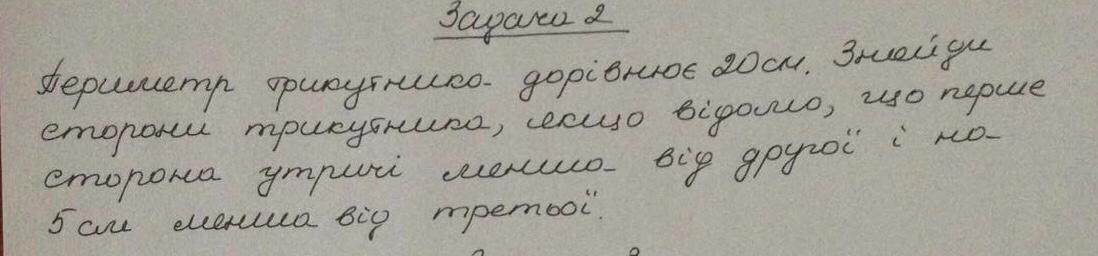 Задача 2
Периметр трикутника дорівнює 20 см. Знайди
сторони трикутника, якщо відомо, що перша
сторона утричі менша від другої і на
5 см менша від третьої.